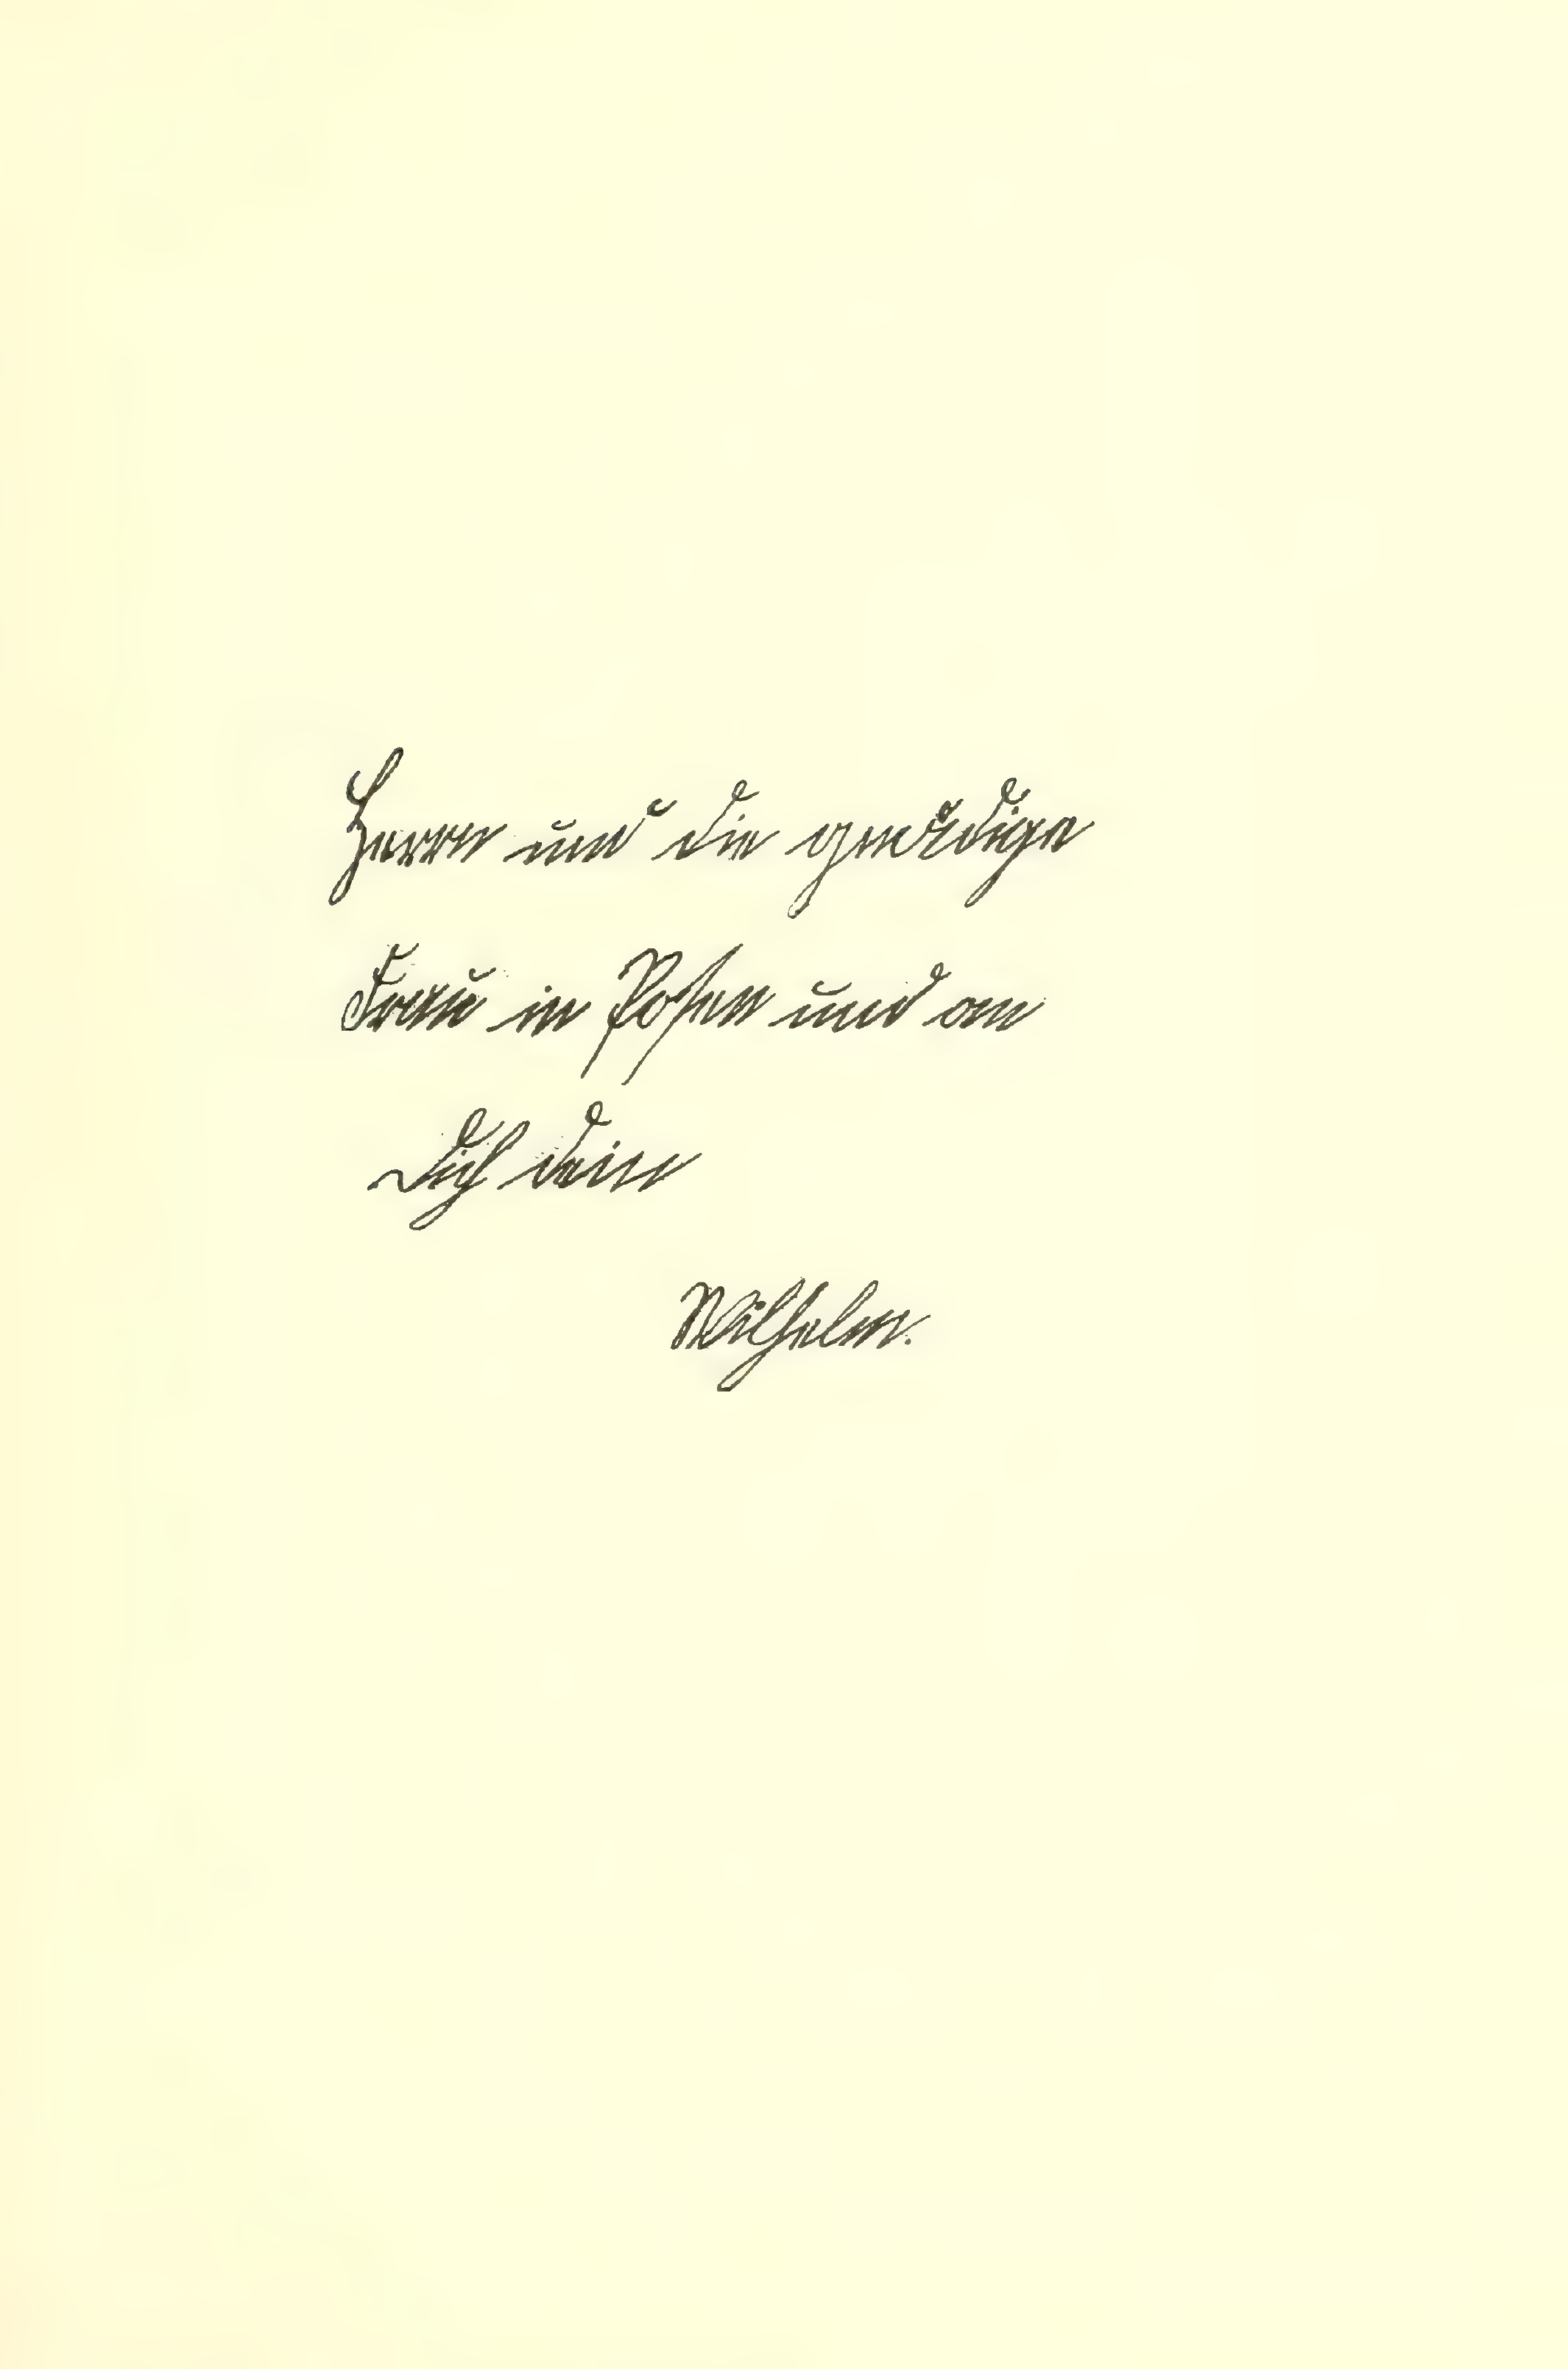 Herrn und die gnädige
Frau in Posen und an
Dich dein
Wilhelm.